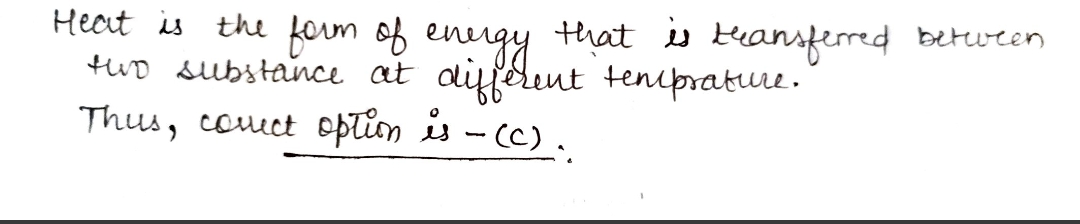 Heat is the form of energy that is transferred between
two substance at different temprature.
Thus, correct option is - (C).